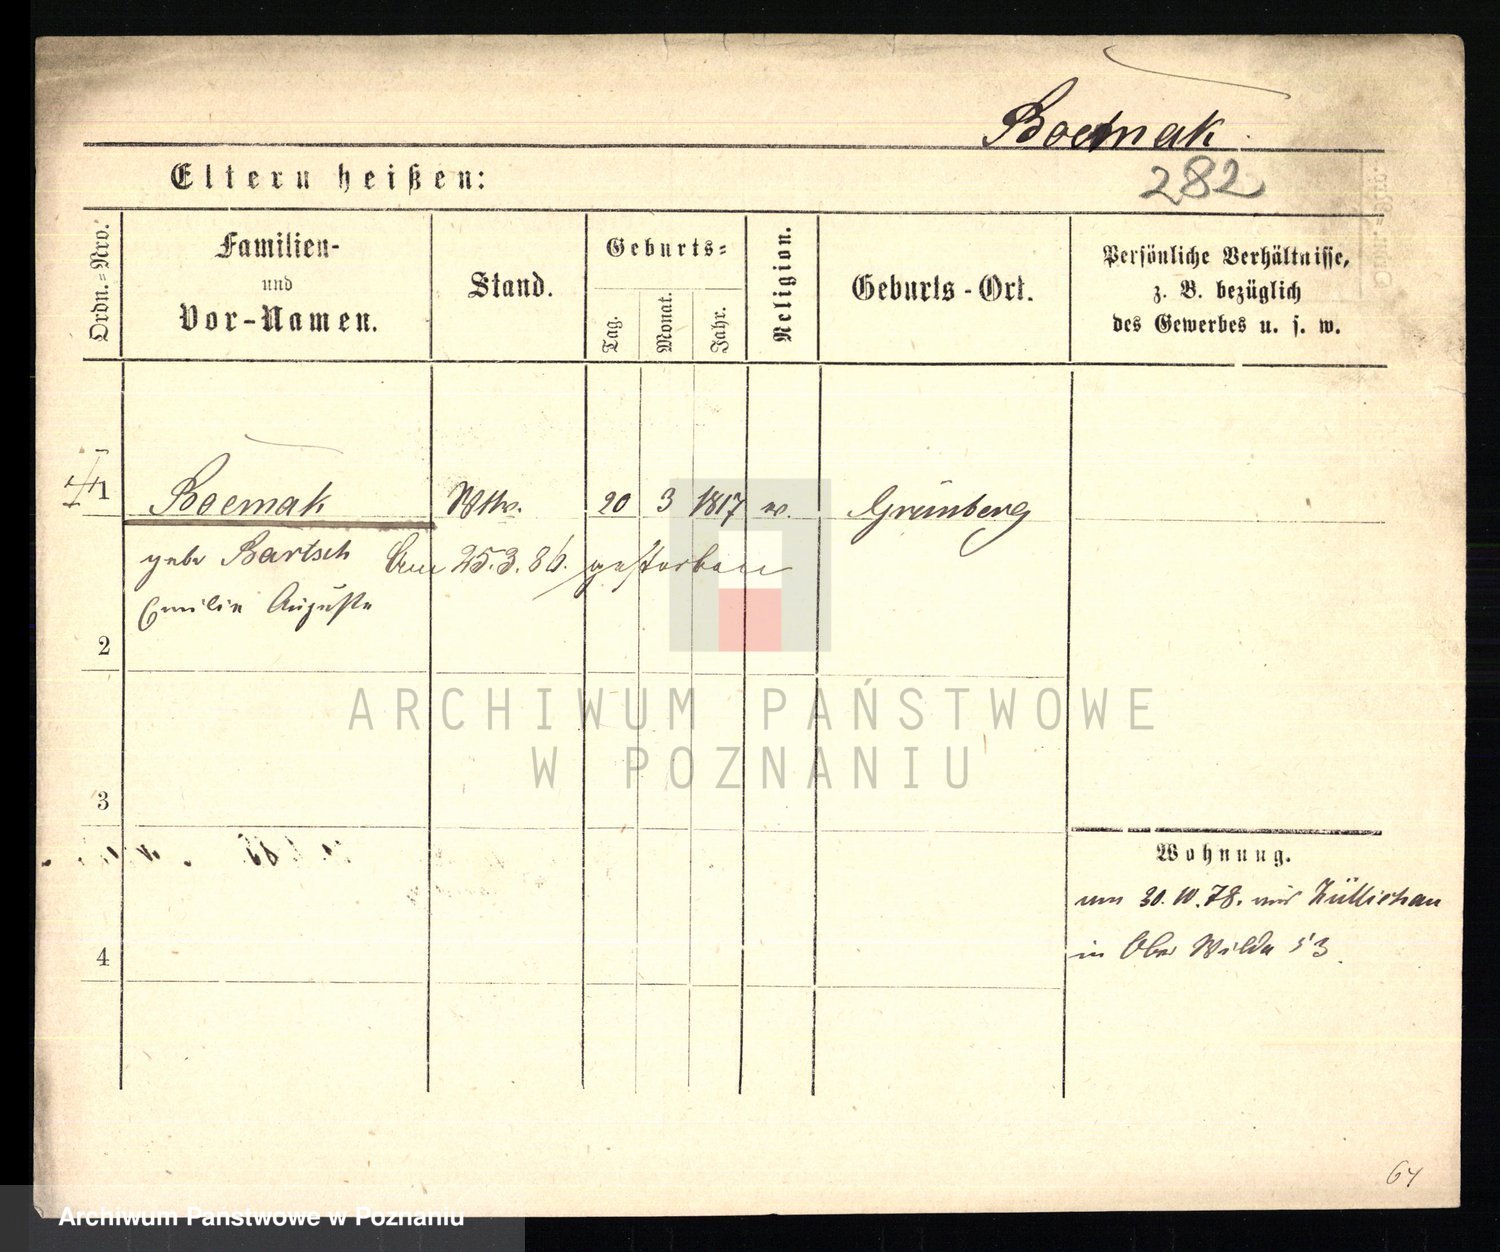 Boemak.
282
Eltern heißen:
Ordn.=Nro.
Familien-
und
Vor-Namen.
Stand.
Geburts=
Tag.
Monat.
Jahr.
Religion.
Geburts-Ort.
Persönliche Verhältnisse,
z. B. bezüglich
des Gewerbes u. s. w.
1 Boemak Wtw. 20 3 1817 ev. Grünberg
geb. Bartsch Am 25.3.86. gestorben
Emilie Auguste
2
3
4
Wohnung.
am 30.10.78. aus Züllichau
in Ober Wilda 53.
ARCHIWUM PAŃSTWOWE
W POZNANIU
64
Archiwum Państwowe w Poznaniu